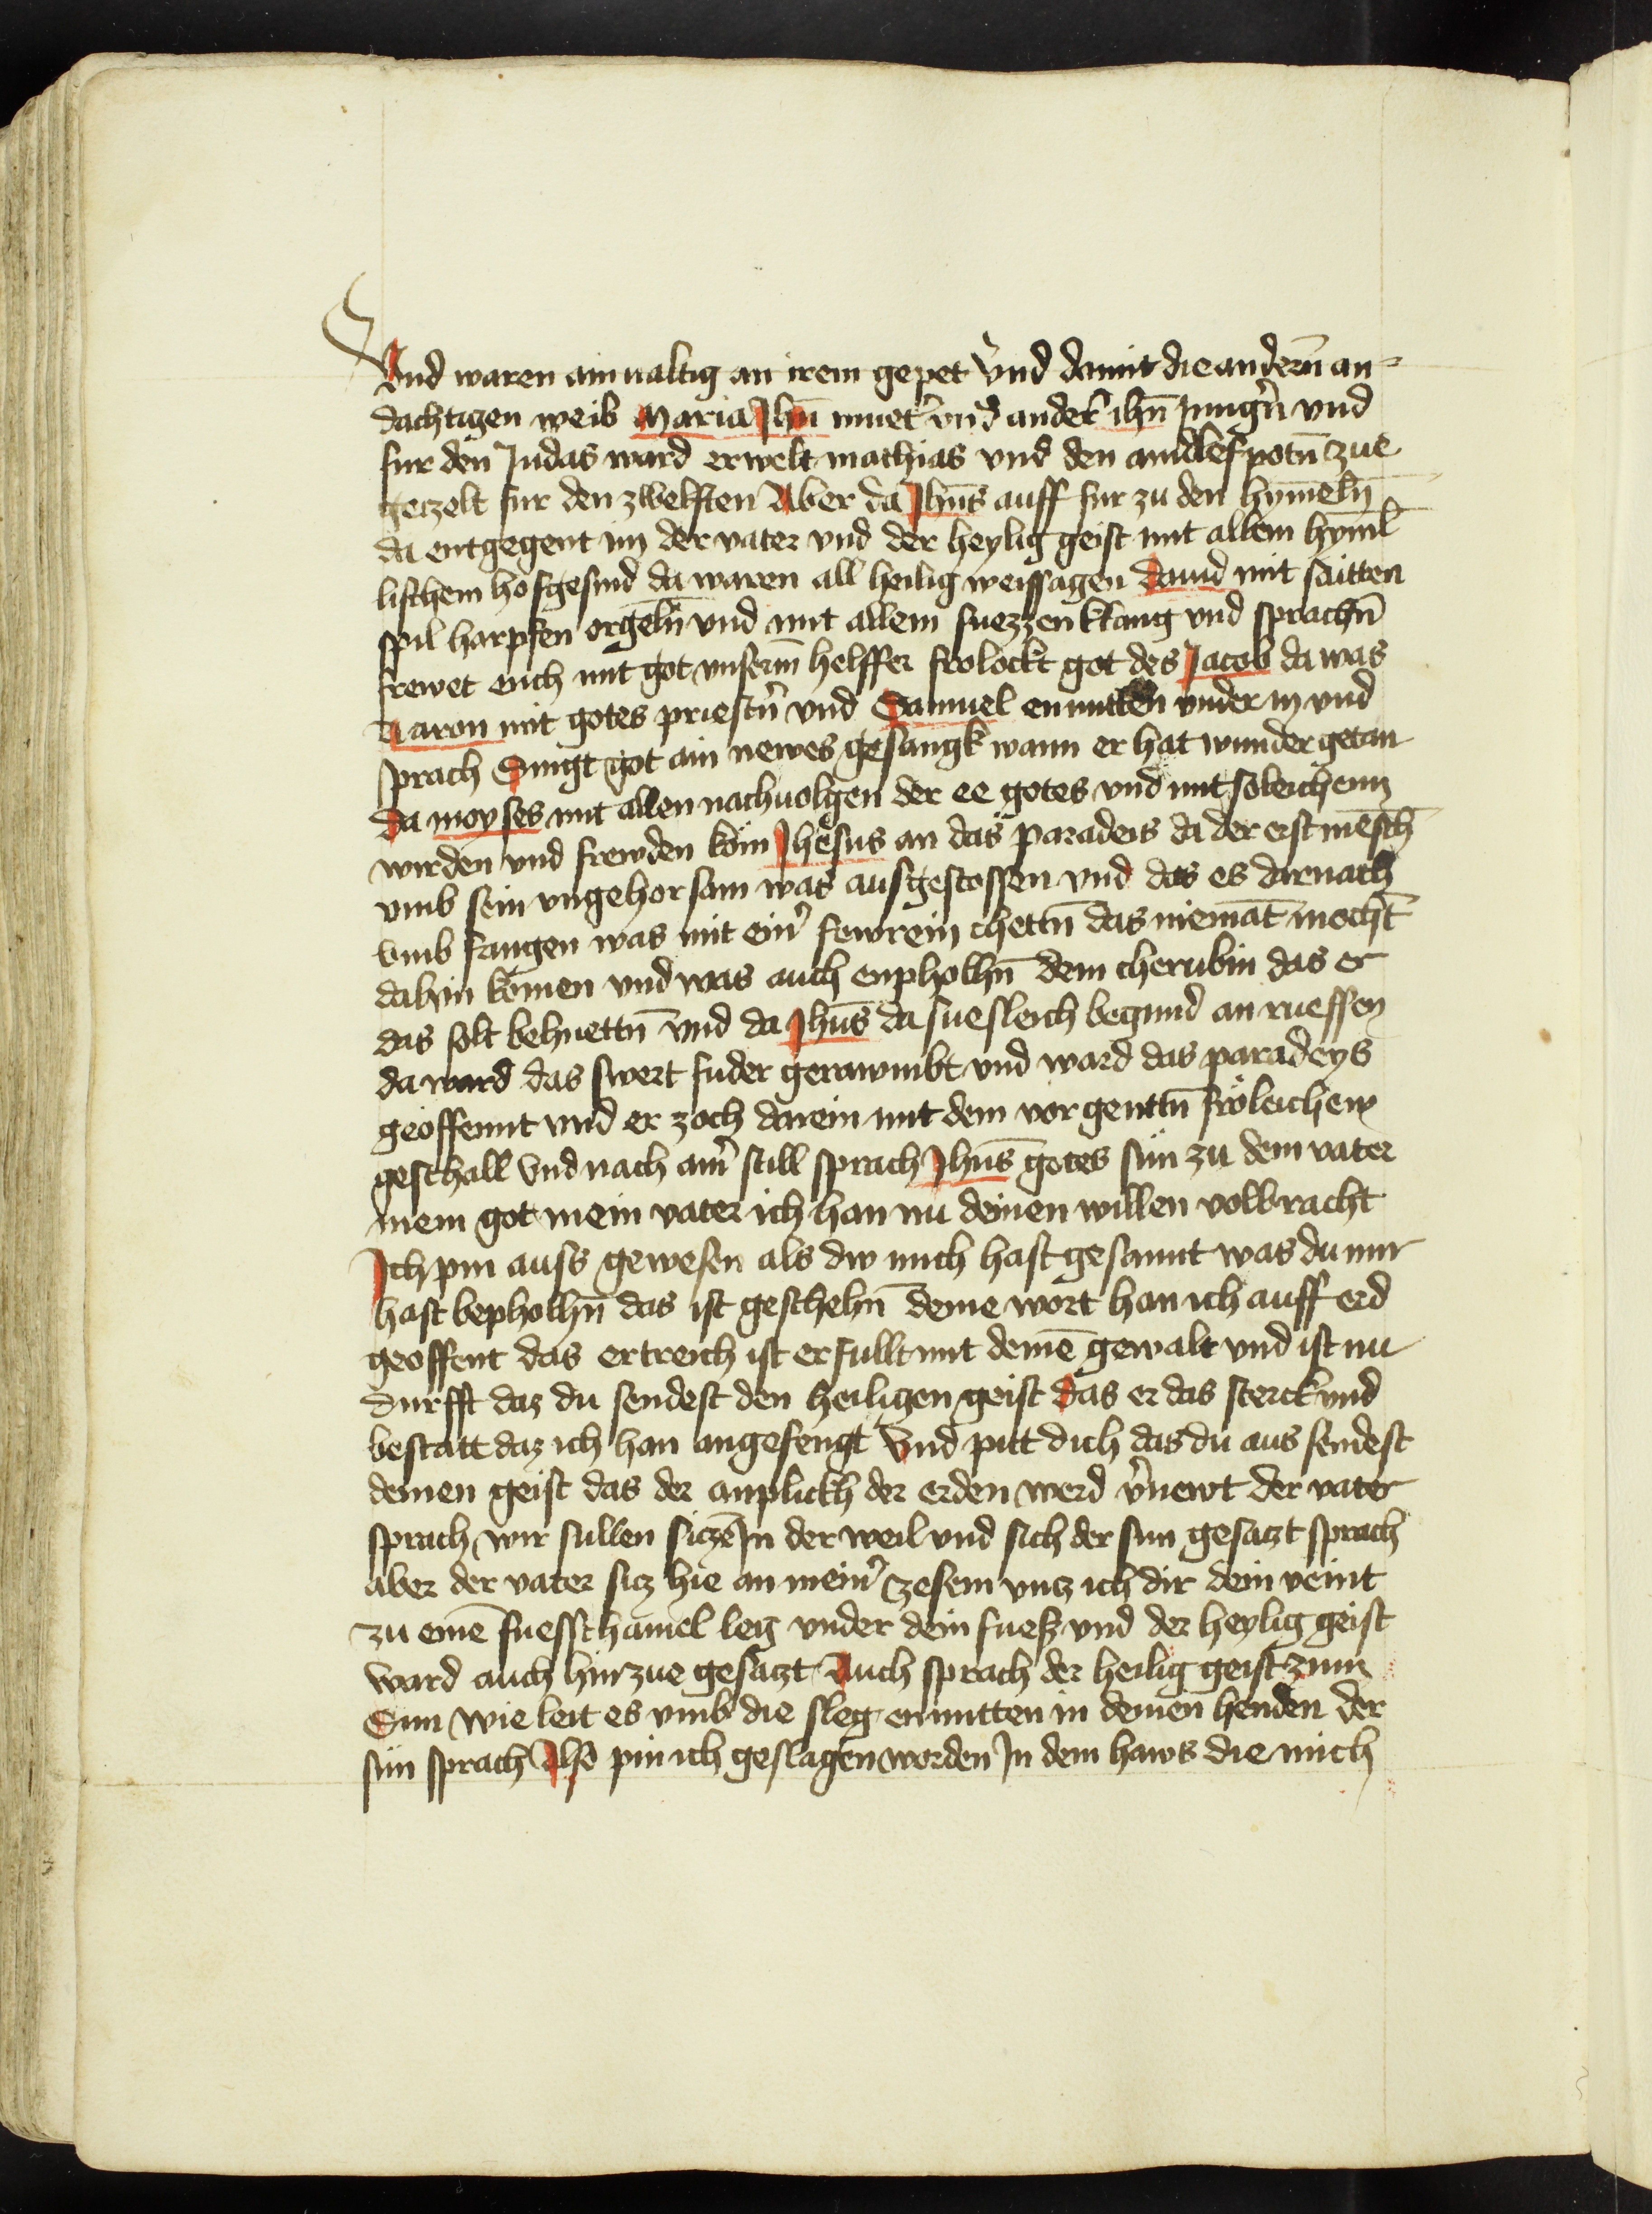 Vnd waren ainualtig an irem gepet vnd damit die andern̄ an⸗
dachtigen weib Maria Jhū muet' vnd ander' ihū Jung'n vnd
fur den Judas ward erwelt mathias vnd den aindlef potn̄ zue
gezelt fur den zwelften Aber da Jhūs auff fur zu den hym̄eln̄
da entgegent im der vater vnd der heylig geist mit allem hym̄l
lischem hofgesind da waren all heilig weissagen Dauid mit saitten
spil harpfen orgeln̄ vnd mit allem suezzen klang vnd sprachn̄
frewet euch mit got vnserm̄ helffer frolockt got des Jacob da was
Aaron mit gotes priest'n vnd Samuel enmitten vnder in vnd
sprach Singt got ain newes gesangk wann er hat wunder getan
Da moyses mit allen nachuolgen der ee gotes vnd mit soleichenn
wirden vnd frewden kom Jhesus an das paradeis da der erst mēsch
vmb sein vngehorsam was ausgestossen vnd das es darnach
vmb fangen was mit ein' fewrein chettn̄ das niemāt mocht
dahin komen vnd was auch enpholhn̄ dem cherubin das er
das solt behuettn̄ vnd da Jhūs da suesleich begund an rueffen
da ward das swert fuder gerawmbt vnd ward das paradeys
geoffennt vnd er zoch darein mit dem vorgenttn̄ froleichem
geschall Vnd nach ain' still sprach Jhūs gotes sun zu dem vater
mein got mein vater ich han nu deinen willen volbracht
Ich pin auss gewesen als dw mich hast gesannt was du mir
hast bepholhn̄ das ist geschehn̄ deine wort han ich auff erd
geoffent das ertreich ist erfullt mit deinē gewalt vnd ist nu
durfft daz du sendest den heiligen geist Das er das sterck vnd
bestatt daz ich han angefengt Vnd pitt dich das du aus sendest
deinen geist das der anplickh der erden werd v'newt der vater
sprach wir sullen siczē In der weil vnd sich der sun gesaczt sprach
aber der vater sicz hie an mein' zesem vncz ich dir dein veint
zu einē fuesschamel leg vnder dein fuess vnd der heylig geist
ward auch hinzue gesaczt Auch sprach der heilig geist zum
Sun wie leit es vmb die sleg enmitten in deinen henden der
sun sprach Also pin ich geslagen worden In dem haws die mich